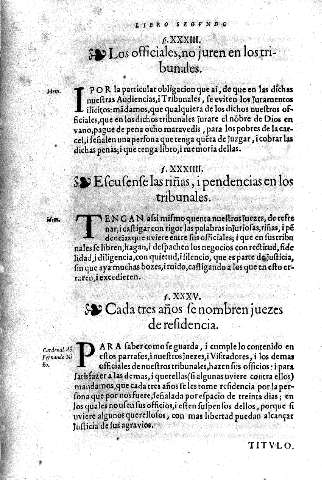 LIBRO SEGVNDO
§. XXXIII.
Los officiales, no juren en los tri-
bunales.
Idem.
I POR la particular obligacion que ai, de que en las dichas
nuestras Audiencias, i Tribunales, se eviten los juramentos
illicitos: mãdamos, que qualquiera de los dichos nuestros of-
ficiales, que en los dichos tribunales jurare el nõbre de Dios en
vano, pague de pena ocho maravedis, para los pobres de la car-
cel, i señalen una persona que tenga quẽta de juzgar, i cobrar las
dichas penas, i que tenga libro, i memoria dellas.
§. XXXIIII.
Escusense las riñas, i pendencias en los
tribunales.
Idem.
TENGAN assi mismo quenta nuestros juezes, de refre
nar, i castigar con rigor las palabras injuriosas, riñas, i pẽ
dencias que uviere entre sus officiales; i que en sus tribu
nales se libren, hagan, i despachen los negocios con rectitud, fide
lidad, i diligencia, con quietud, i silencio, que es parte de justicia,
sin que aya muchas bozes, i ruido, castigando a los que en esto er-
raren, i excedieren.
§. XXXV.
Cada tres años se nombren juezes
de residencia.
Cardenal Dõ
Fernando Ni
ño.
PARA saber como se guarda, i cumple lo contenido en
estos parrafes, i nuestros juezes, i Visitadores, i los demas
officiales de nuestros tribunales, hazen sus officios: i para
satisfazer a las demas, i querellas (si algunas uviere contra ellos)
mandamos, que cada tres años se les nome residencia por la per-
sona que por nos fuere, señalada por espacio de treinta dias; en
los quales no usen sus officios, i esten suspensos dellos, porque si
uviere algunos querellosos, con mas libertad puedan alcançar
justicia de sus agravios.
TITVLO.